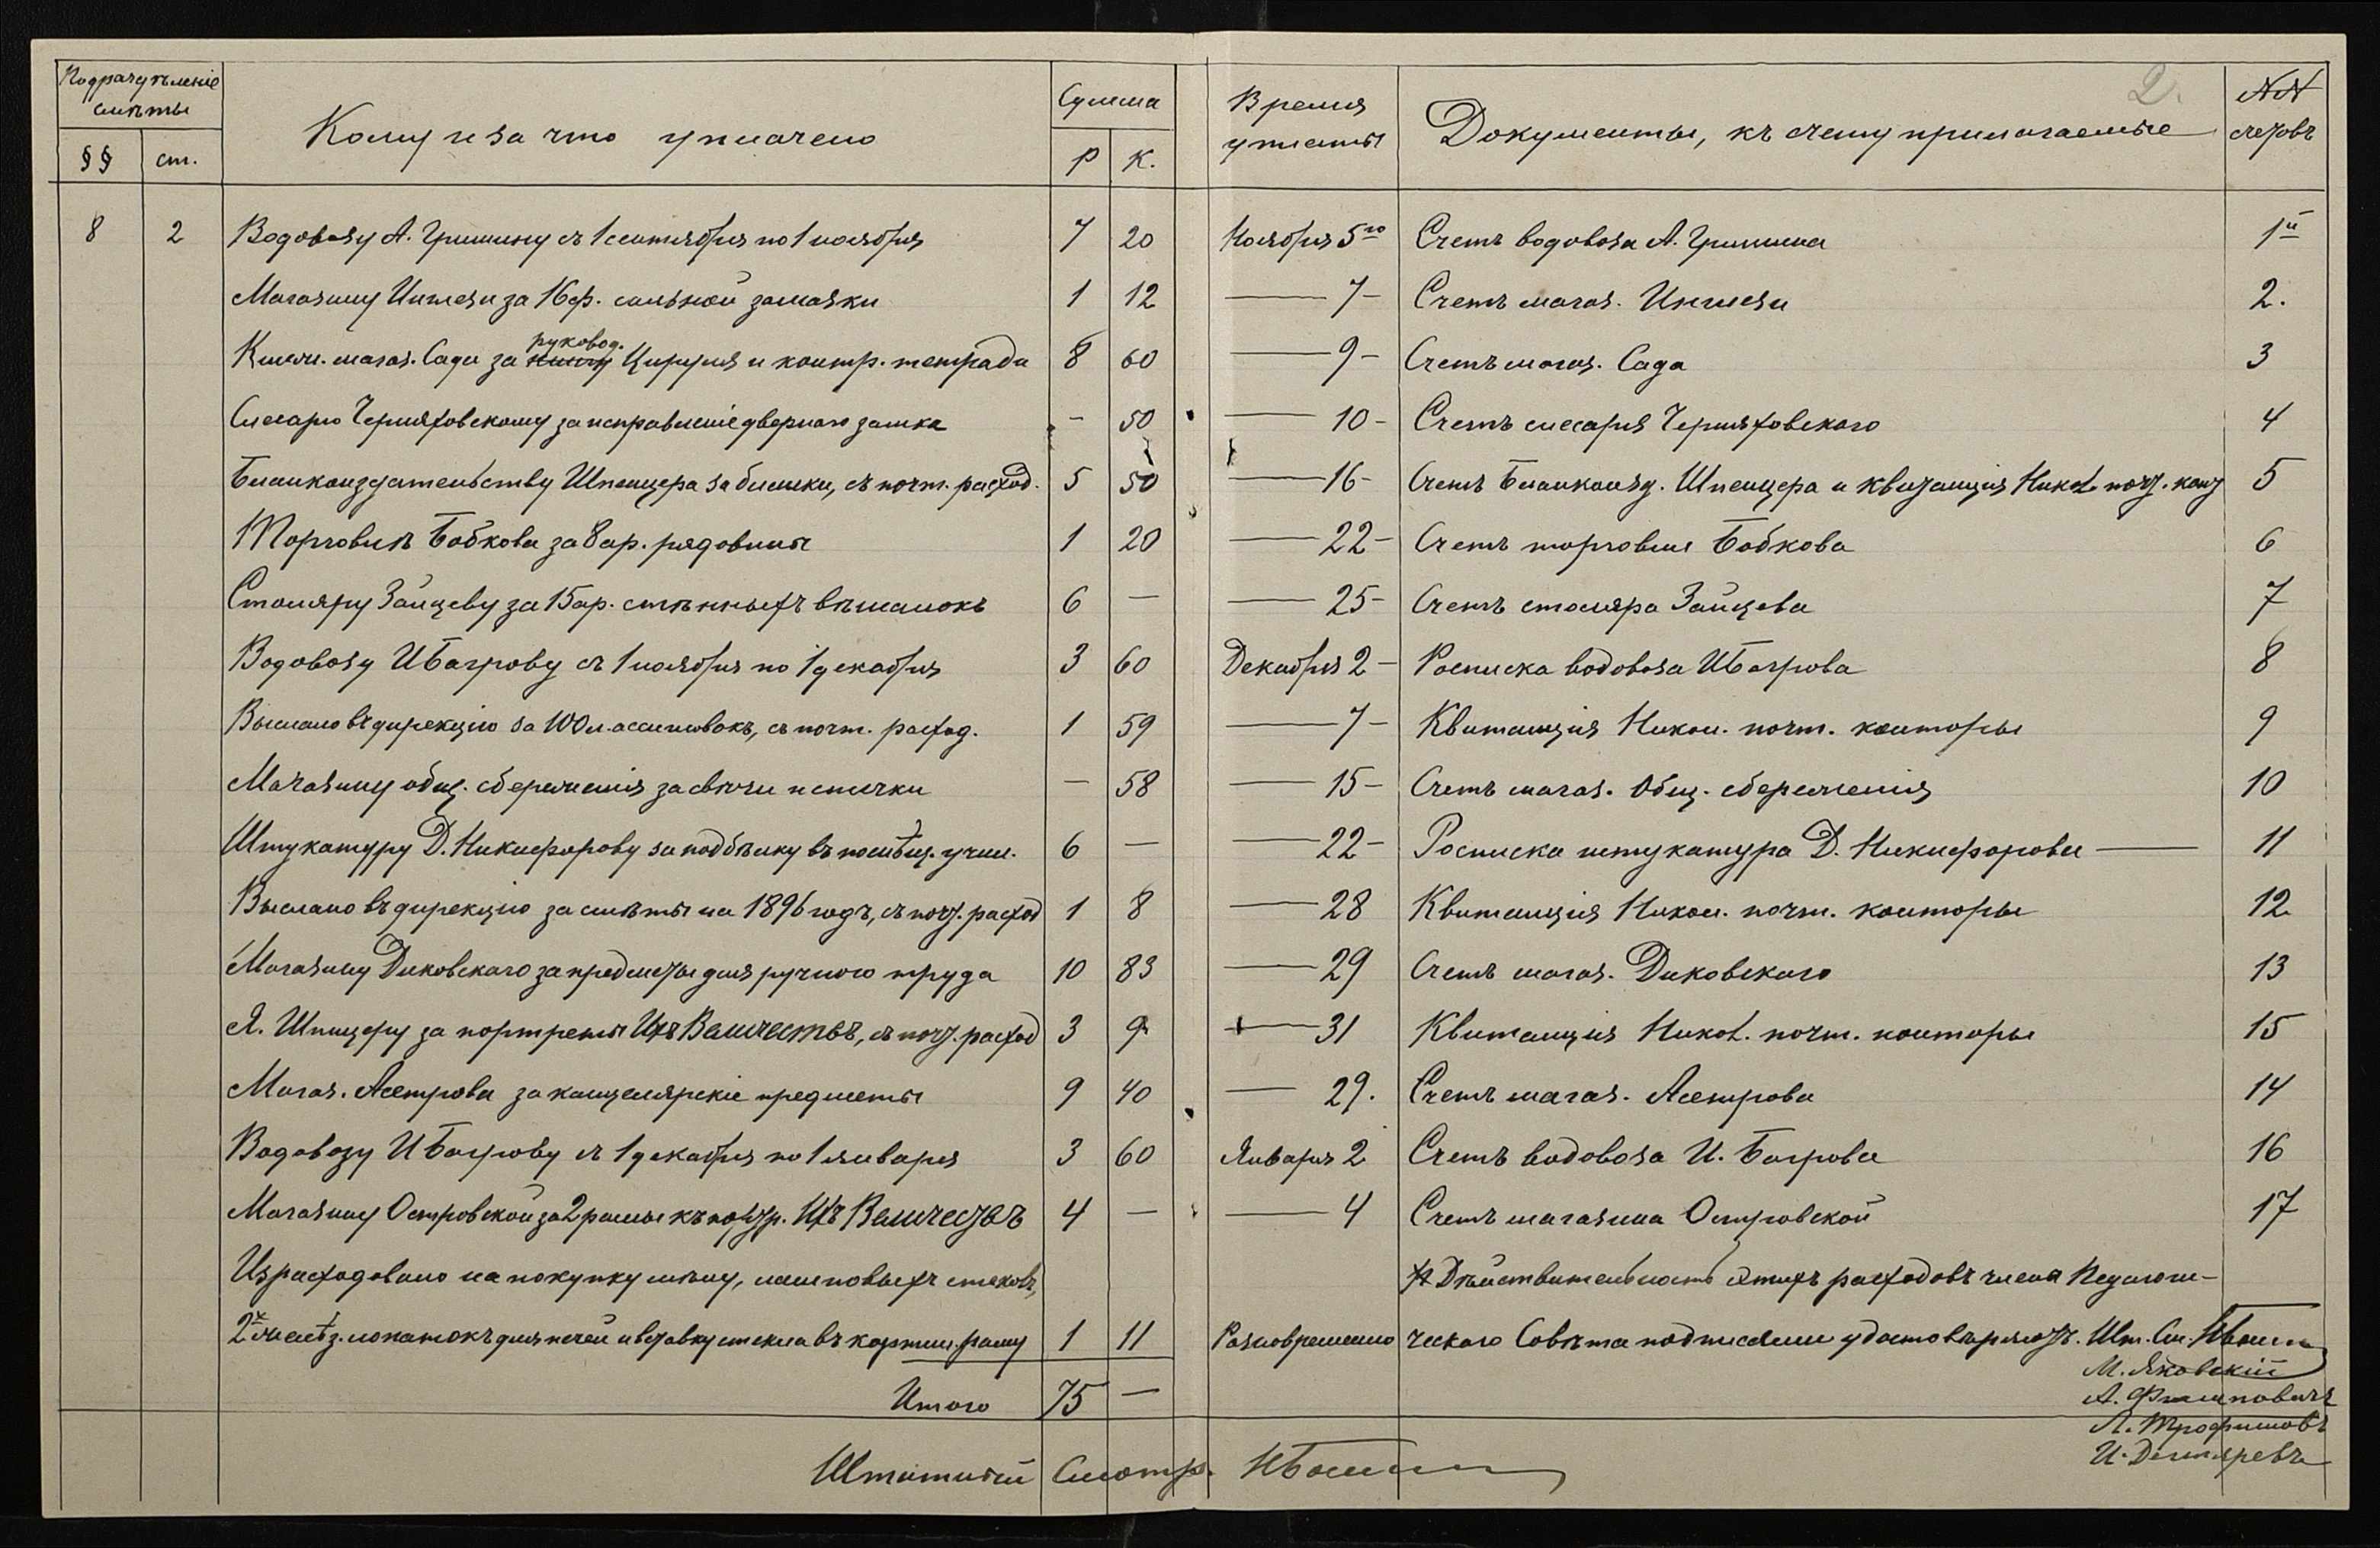 Подразделенiе смѣты
§§ ст.
Кому и за что уплачено
Сумма
Р К.
Время уплаты
Документы, къ счету прилагаемые
2.
№№ счетовъ
8 2 Водовозу А. Гришину съ 1 сентября по 1 ноября 7 20 Ноября 5го Счетъ водовоза А. Гришина 1й
Магазину Инглези за 16 ф. сильной замазки 1 12 — 7 - Счетъ магаз. Инглези 2.
руковод.
Книжн. магаз. Сада за книгу Цируля и контр. тетради 8 60 — 9 - Счетъ магаз. Сада 3
Слесарю Черняховскому за исправленiе дверного замка - 50 — 10 - Счетъ слесаря Черняховскаго 4
Бланкоиздательству Шпенцера за бланки, съ почт. расход. 5 50 — 16 - Счетъ Бланкоизд. Шпенцера и квитанцiя Никол. почт. кон 5
Торговлѣ Бабкова за 8 ар. рядовины 1 20 — 22 - Счетъ торговли Бабкова 6
Столяру Зайцеву за 15 ар. стѣнныхъ вѣшалокъ 6 — — 25 - Счетъ столяра Зайцева 7
Водовозу И Багрову съ 1 ноября по 1 декабря 3 60 Декабря 2 - Росписка водовоза И Багрова 8
Выслано въ дирекцiю за 100 л. ассигновокъ, съ почт. расход. 1 59 — 7 - Квитанцiя Никол. почт. конторы 9
Магазину общ. сбереженiя за свѣчи и спички — 58 — 15 - Счетъ магаз. Общ. сбереженiя 10
Штукатуру Д. Никифорову за подбѣлку въ помѣщ. учил. 6 — — 22 - Росписка штукатура Д. Никифорова — 11
Выслано въ дирекцiю за смѣты на 1896 годъ, съ почт. расход 1 8 — 28 Квитанцiя Никол. почт. конторы 12
Магазину Диковскаго за предметы для ручного труда 10 83 — 29 Счетъ магаз. Диковскаго 13
Я. Шпицеру за портреты Ихъ Величествъ, съ почт. расход 3 9 — 31 Квитанцiя Никол. почт. конторы 15
Магаз. Асетрова за канцелярскiе предметы 9 40 — 29. Счетъ магаз. Асетрова 14
Водовозу И Багрову съ 1 декабря по 1 января 3 60 Января 2 Счетъ водовоза И. Багрова 16
Магазину Островской за 2 рамы къ портр. Ихъ Величествъ 4 — — 4 Счетъ магазина Островской 17
Израсходовано на покупку мѣлу, ламповыхъ стеколъ, Дѣйствительность этихъ расходовъ члена Педагоги-
2хъ желѣз. лопатокъ для печей и вставку стекла въ картин. раму 1 11 Разновременно ческаго Совѣта подписями удостовѣряютъ. Шт. См.
М. Яковскiй
Итого 75 — А. Филиповичъ
Л. Трофимовъ
Штатный Смотр. И. Дегтяревъ